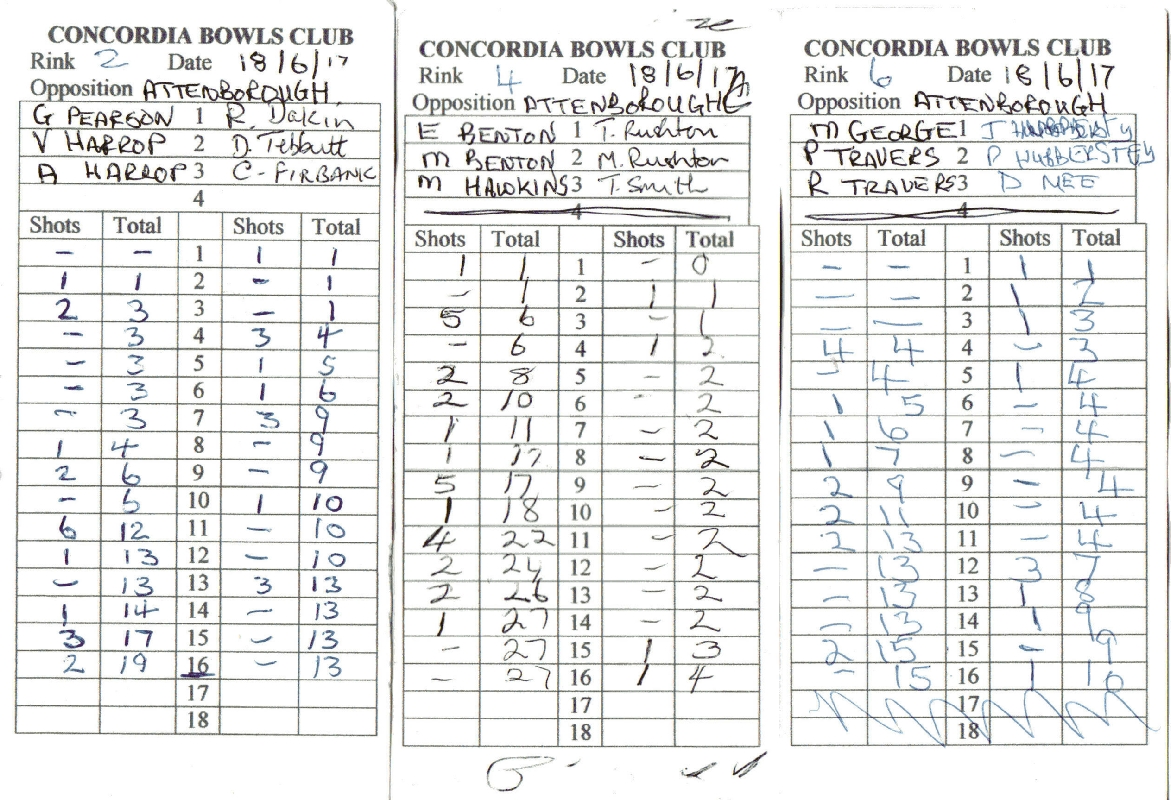 CONCORDIA BOWLS CLUB
Rink 2 Date 18/6/17
Opposition ATTENBOROUGH
G PEARSON 1 R. Dakin
V HARROP 2 D. Tebbutt
A HARROP 3 C. FIRBANK
4
Shots Total Shots Total
– – 1 1 1
1 1 2 – 1
2 3 3 – 1
– 3 4 3 4
– 3 5 1 5
– 3 6 1 6
– 3 7 3 9
1 4 8 – 9
2 6 9 – 9
– 6 10 1 10
6 12 11 – 10
1 13 12 – 10
– 13 13 3 13
1 14 14 – 13
3 17 15 – 13
2 19 16 – 13
17
18
CONCORDIA BOWLS CLUB
Rink 4 Date 18/6/17
Opposition ATTENBOROUGH
E BENTON 1 T. Rushton
M BENTON 2 M. Rushton
M HAWKINS 3 T. Smith
4
Shots Total Shots Total
1 1 1 – 0
– 1 2 1 1
5 6 3 – 1
– 6 4 1 2
2 8 5 – 2
2 10 6 – 2
1 11 7 – 2
1 12 8 – 2
5 17 9 – 2
1 18 10 – 2
4 22 11 – 2
2 24 12 – 2
2 26 13 – 2
1 27 14 – 2
– 27 15 1 3
– 27 16 1 4
17
18
CONCORDIA BOWLS CLUB
Rink 6 Date 18/6/17
Opposition ATTENBOROUGH
M GEORGE 1 J
P TRAVERS 2 P HUBBERSTEY
R TRAVERS 3 D MEE
4
Shots Total Shots Total
– – 1 1 1
– – 2 1 2
– – 3 1 3
4 4 4 – 3
– 4 5 1 4
1 5 6 – 4
1 6 7 – 4
1 7 8 – 4
2 9 9 – 4
2 11 10 – 4
2 13 11 – 4
– 13 12 3 7
– 13 13 1 8
– 13 14 1 9
2 15 15 – 9
– 15 16 1 10
17
18